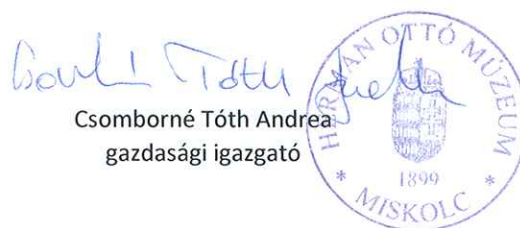 Csomborné Tóth Andrea
gazdasági igazgató
HERMAN OTTÓ MÚZEUM
1899
* MISKOLC *